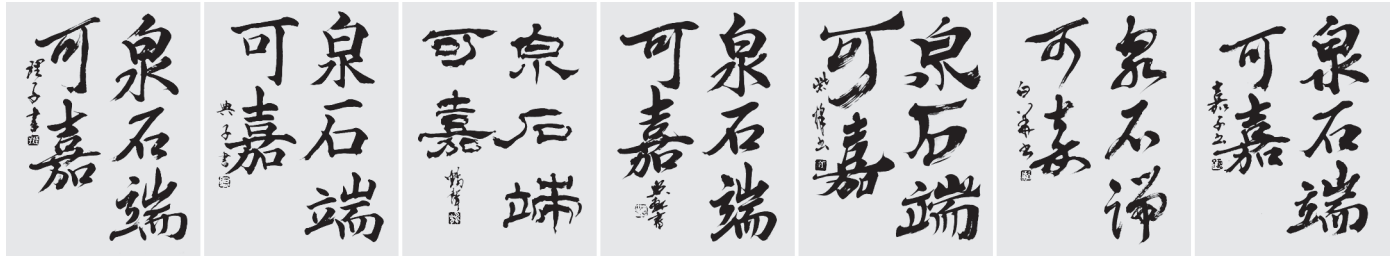 泉石端
可嘉
理子書
泉石端
可嘉
典子書
泉石端
可嘉
泉石端
可嘉
泉石端
可嘉
泉石端
可嘉
泉石端
可嘉
嘉子书